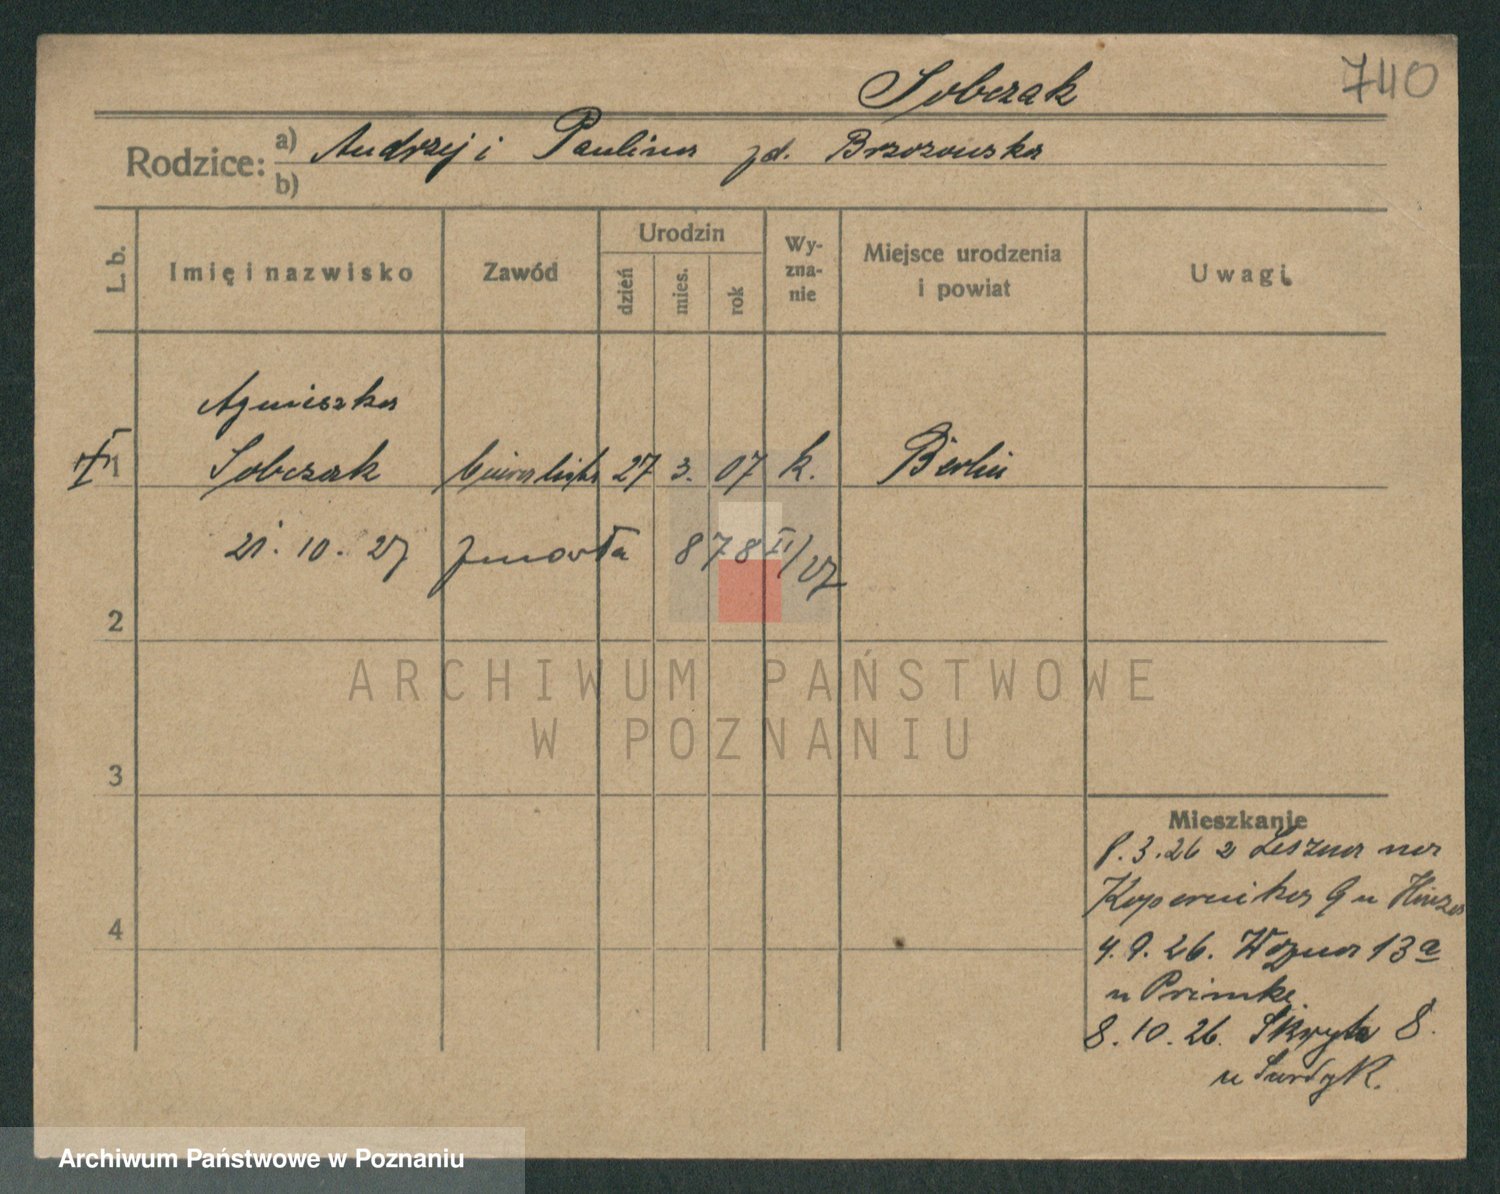 740
Sobczak
Rodzice: a) Andrzej i Paulina zd. Brzozowska
b)
L. b.
Imię i nazwisko
Zawód
Urodzin
dzień
mies.
rok
Wy-
zna-
nie
Miejsce urodzenia
i powiat
Uwagi
Agnieszka
1 Sobczak 27 3. 07 k. Berlin
21. 10. 27 zmarła 878 II/27
2
ARCHIWUM PAŃSTWOWE
W POZNANIU
3
Mieszkanie
8.3.26 z Leszna na
Kopernika 9 u Hinza
4
4.9.26. Woźna 13a
u Primke
8.10.26. Skryta 8.
u Surdyk.
Archiwum Państwowe w Poznaniu